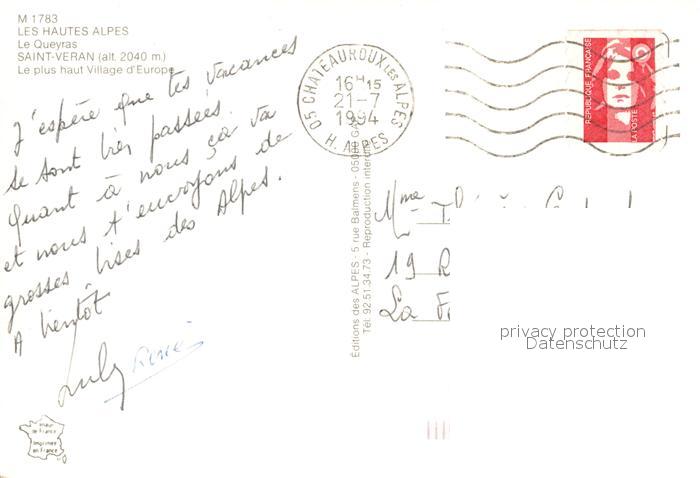 M 1783
LES HAUTES ALPES
Le Queyras
SAINT-VERAN (alt. 2040 m.)
Le plus haut Village d'Europe
J'espère que tes vacances
se sont bien passées.
Quant à nous ça va
et nous t'envoyons de
grosses bises des Alpes.
A bientôt
René
05 CHATEAUROUX LES ALPES
16 H 15
21-7
1994
H. ALPES
REPUBLIQUE FRANÇAISE
LA POSTE
Éditions des ALPES - 5 rue Balmens - 05000 GAP
Tél. 92.51.34.73 - Reproduction interdite
Mme
19 R
La F
privacy protection
Datenschutz
Imprimée
en France